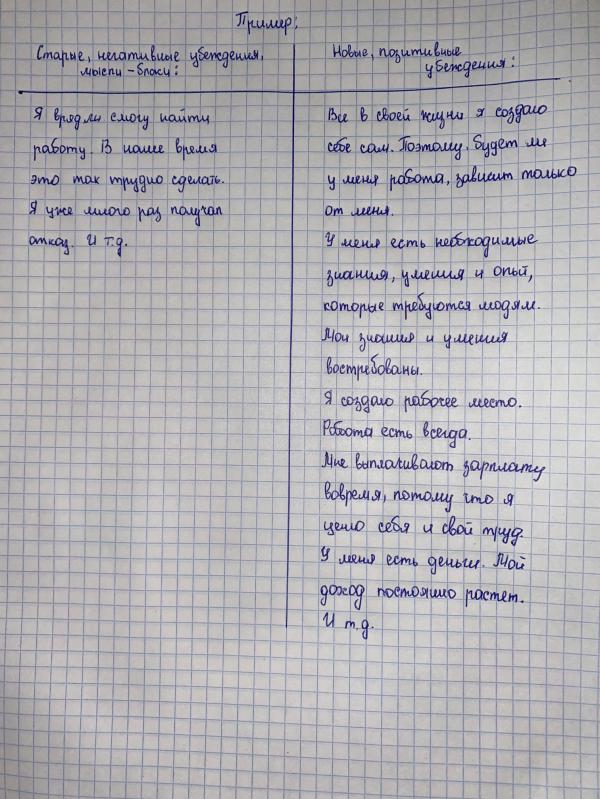 Пример:
Старые, негативные убеждения,
мысли-блоки:
Я вряд ли смогу найти
работу. В наше время
это так трудно сделать.
Я уже много раз получал
отказ. И т.д.
Новые, позитивные
убеждения:
Все в своей жизни я создаю
себе сам. Поэтому, будет ли
у меня работа, зависит только
от меня.
У меня есть необходимые
знания, умения и опыт,
которые требуются людям.
Мои знания и умения
востребованы.
Я создаю рабочее место.
Работа есть всегда.
Мне выплачивают зарплату
вовремя, потому что я
ценю себя и свой труд.
У меня есть деньги. Мой
доход постоянно растет.
И т.д.